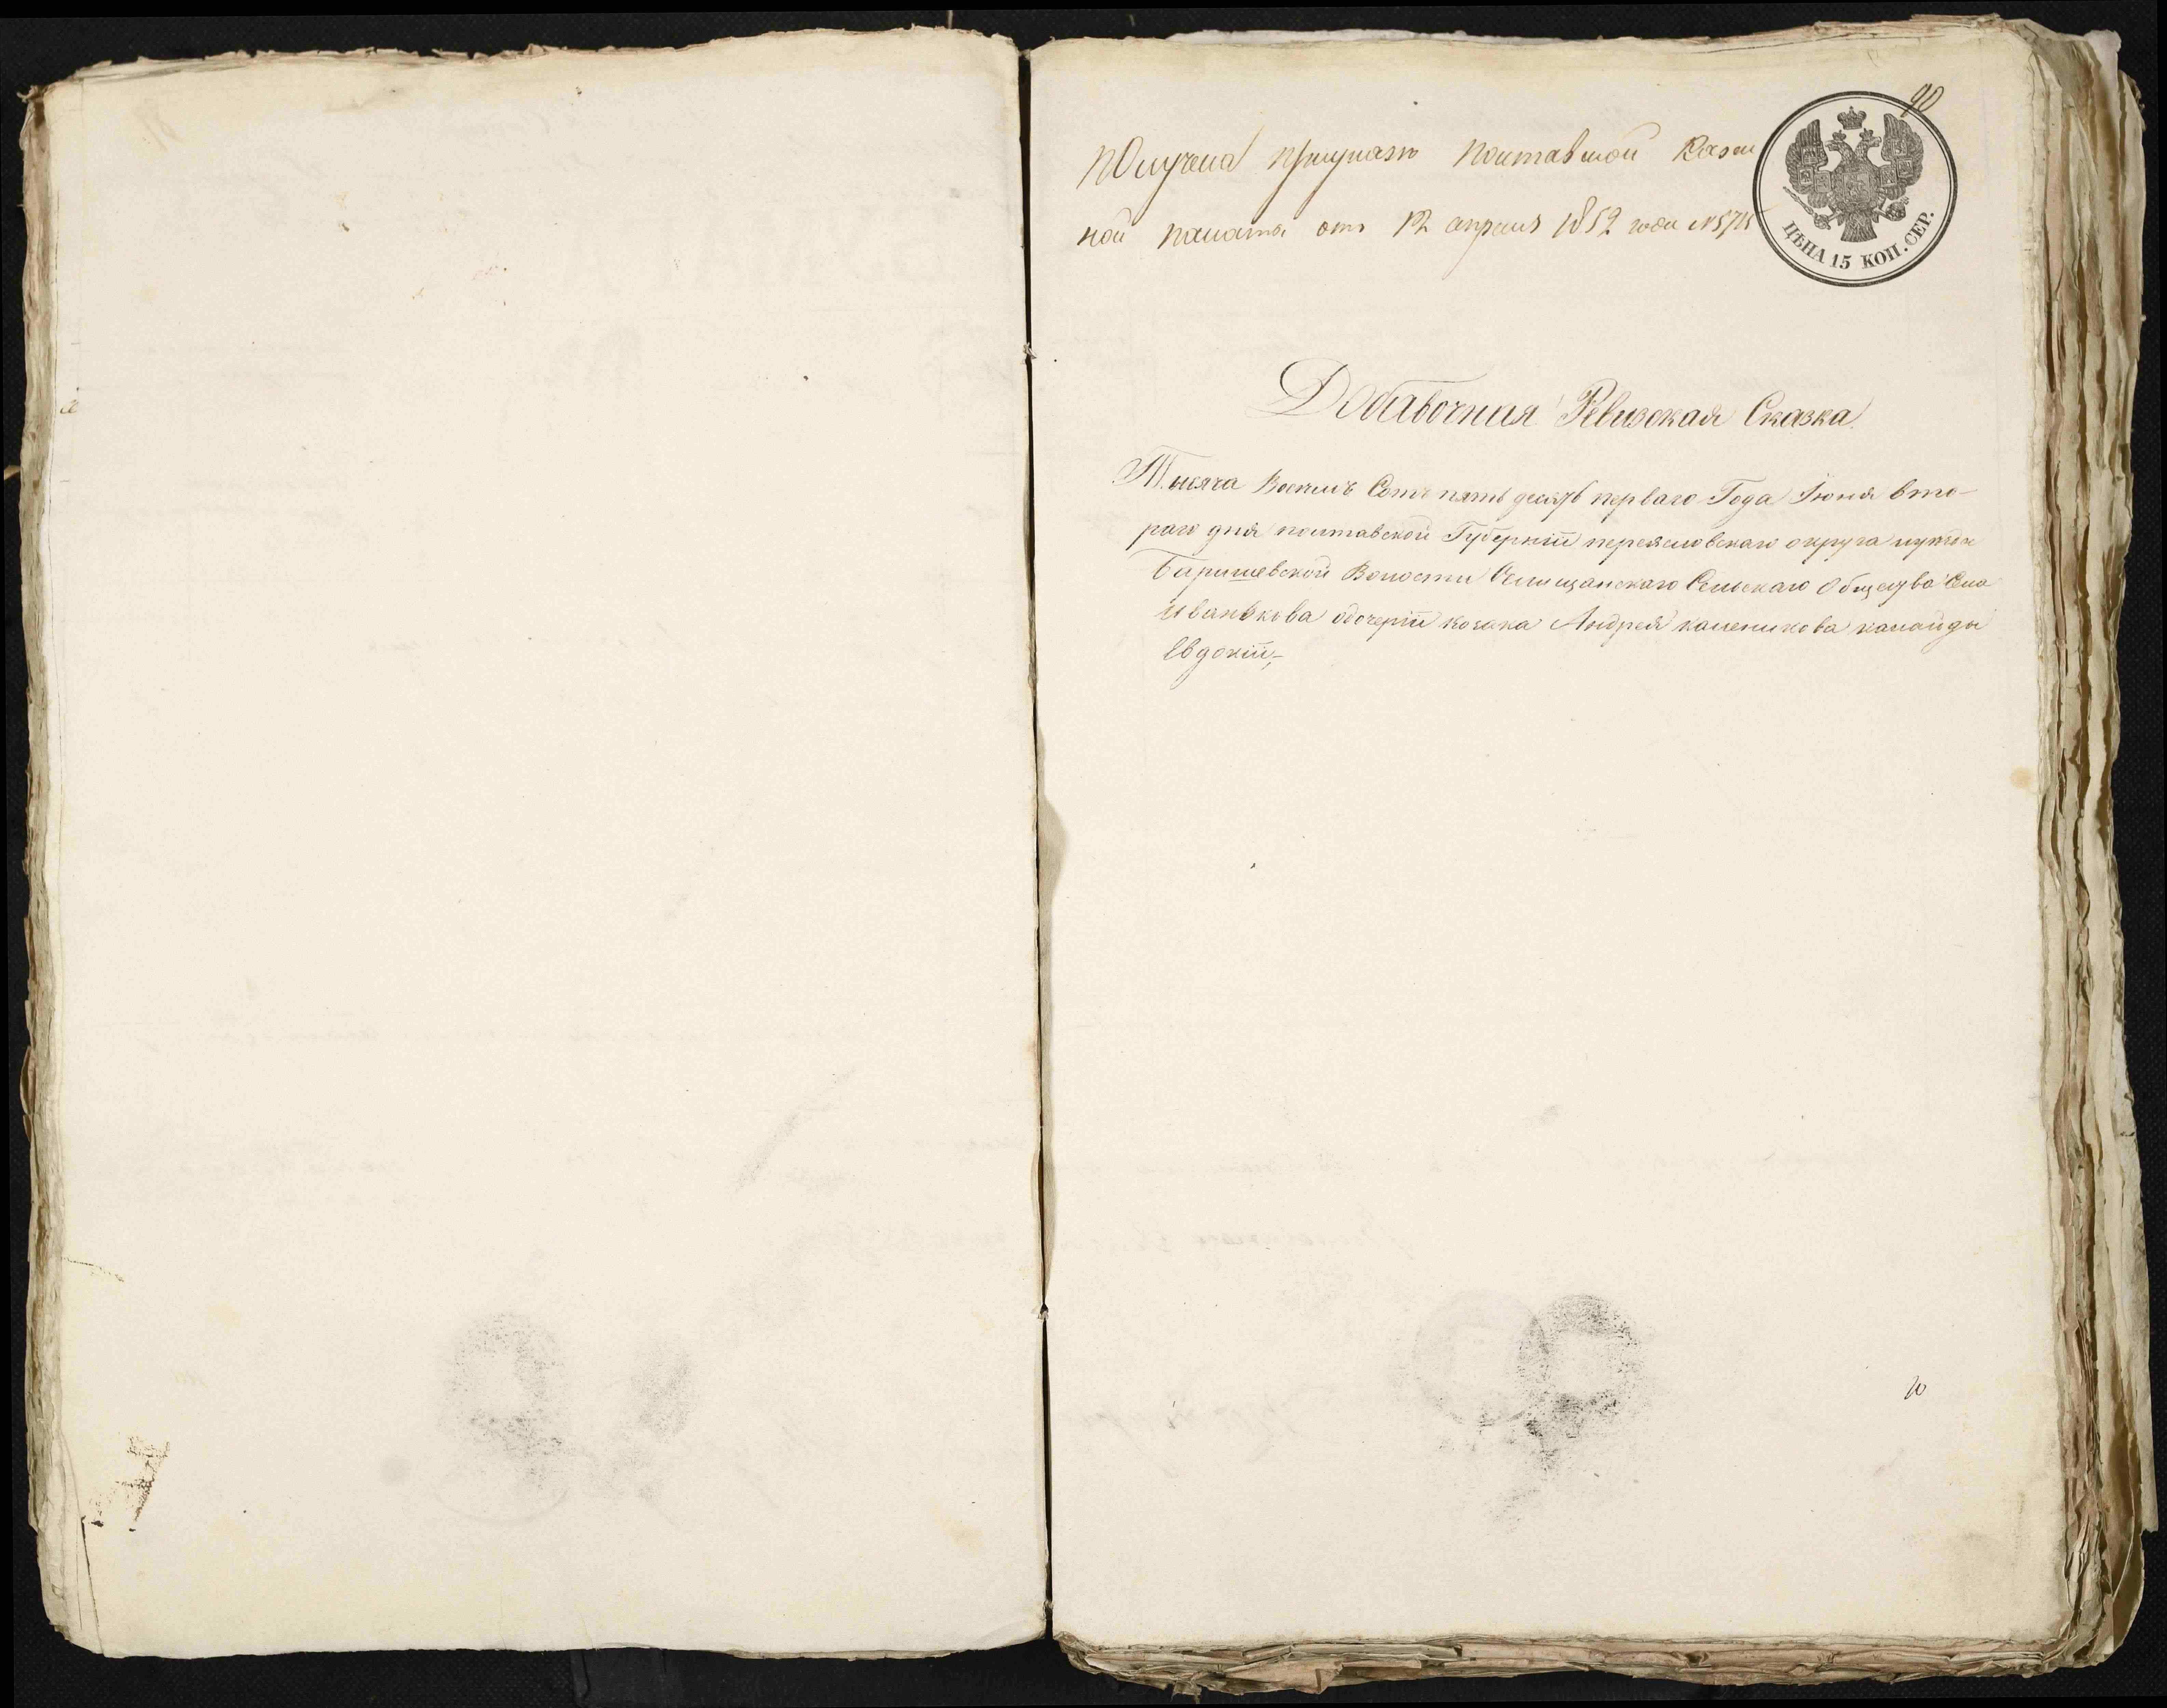 90
Получена при указе Полтавской Казен
ной палаты от 12 апреля 1852 года №
ЦѢНА 15 КОП. СЕР.
Добавочная Ревизская Сказка.
Тысяча Восемъ Сотъ пять десятъ перваго Года Іюня вто-
раго дня полтавской Губерніи переяславскаго округа
Баришевской Волости Селищанскаго Сельскаго Общества Села
Иванкова одочеріи козака Андрея
Евдокіи,-